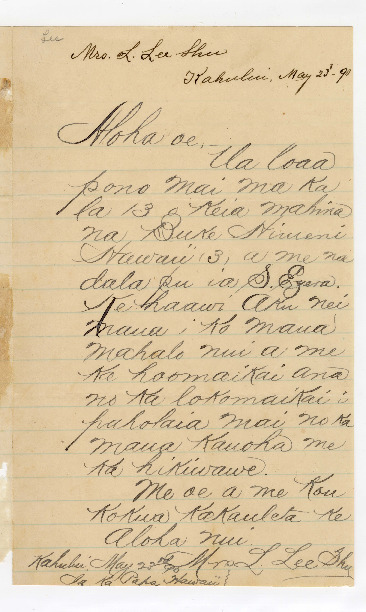 Lee
Mrs. L. Lee Shu
Kahului, May 23d - 90
Aloha oe, -
Ua loaa
pono mai ma ka
la 13 o keia mahina
na Buke Himeni
Hawaii (3) a me na
dala pu ia S.
Ke haawi aku nei
maua i ko maua
mahalo nui a me
ka hoomaikai ana
no ka lokomaikai i
paholaia mai no ka
maua kauoha me
ka hikiwawe.
Me oe a me kou
kokua kakauleta ke
Aloha nui.
Kahului May 23d Mrs L. Lee Shu
Ia Ka Papa Hawaii